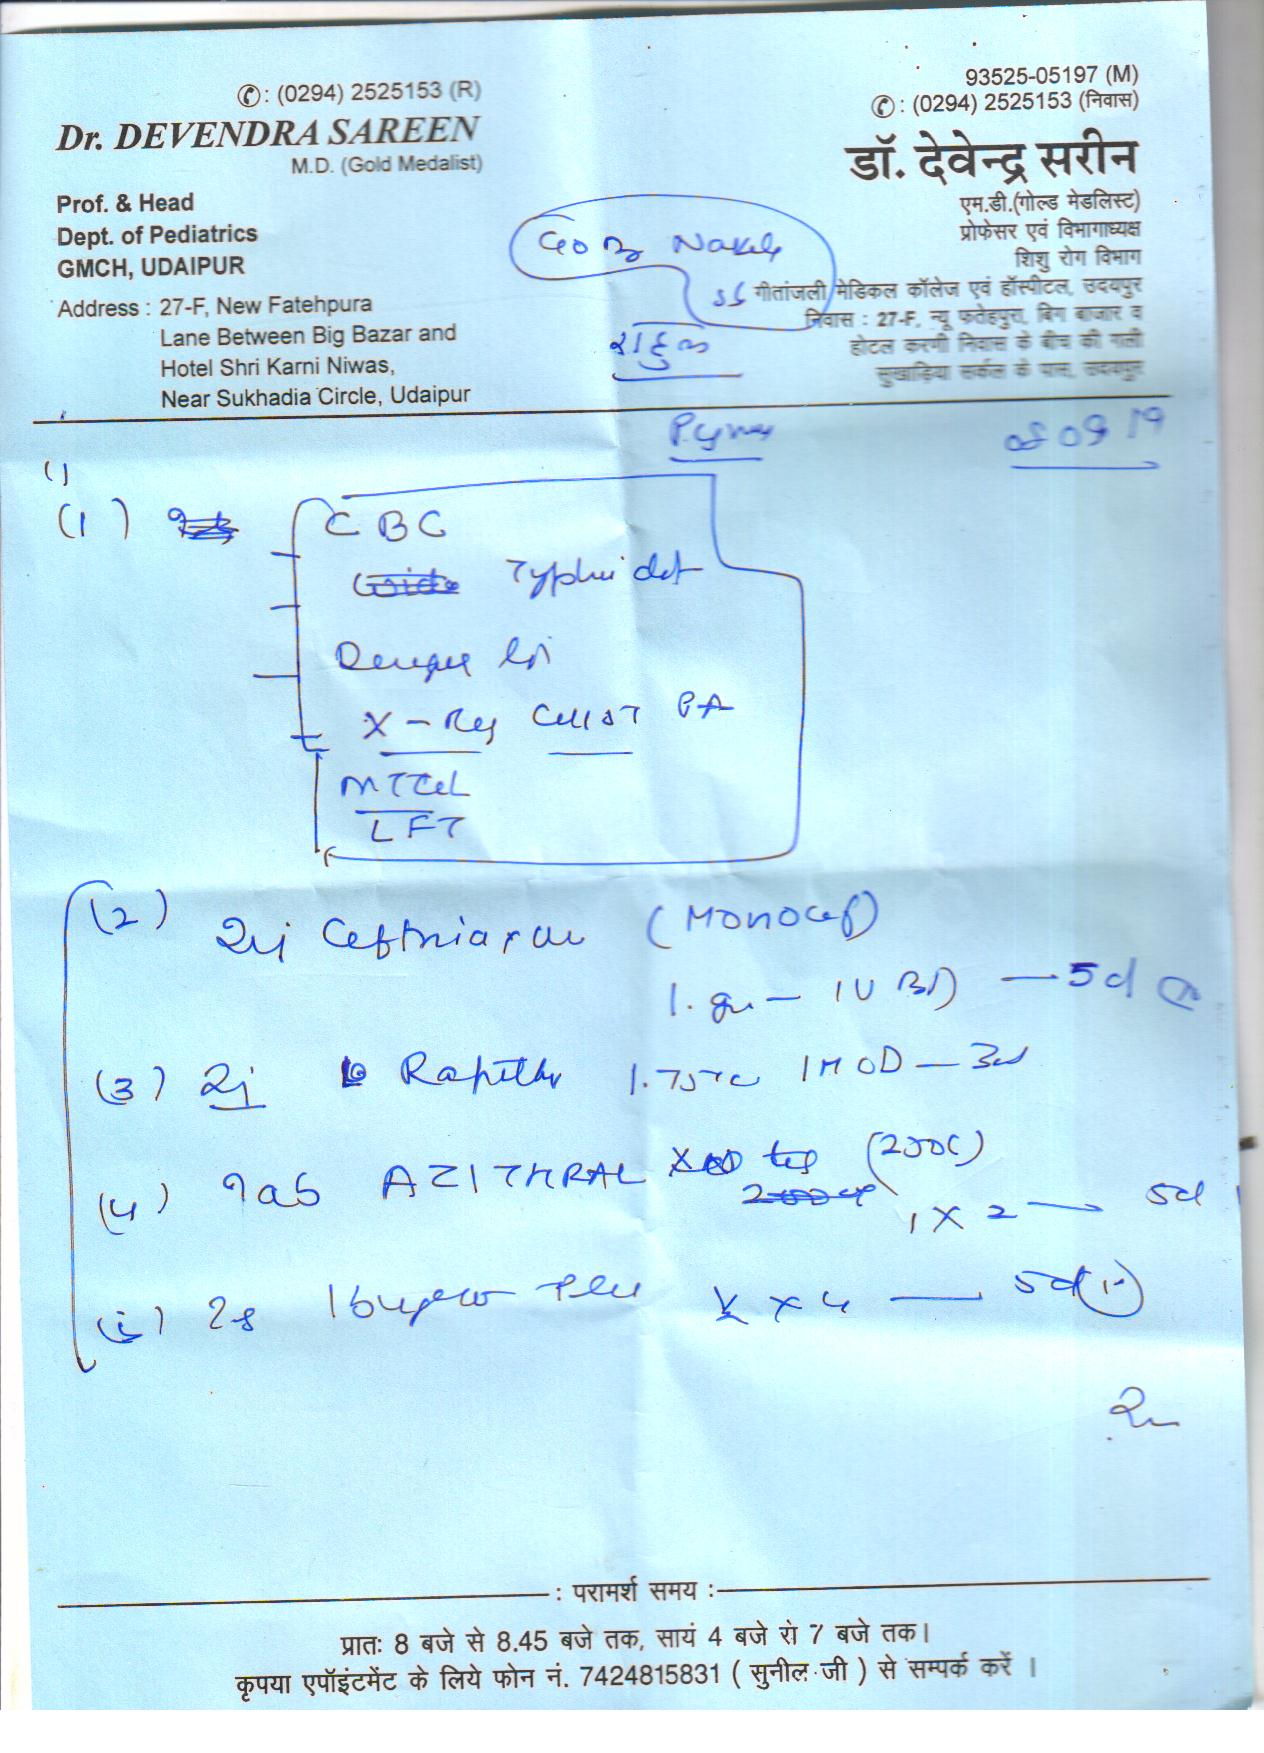 ✆: (0294) 2525153 (R)
Dr. DEVENDRA SAREEN
M.D. (Gold Medalist)
Prof. & Head
Dept. of Pediatrics
GMCH, UDAIPUR
Address : 27-F, New Fatehpura
Lane Between Big Bazar and
Hotel Shri Karni Niwas,
Near Sukhadia Circle, Udaipur
93525-05197 (M)
✆: (0294) 2525153 (निवास)
डॉ. देवेन्द्र सरीन
एम.डी.(गोल्ड मेडलिस्ट)
प्रोफेसर एवं विभागाध्यक्ष
शिशु रोग विभाग
गीतांजली मेडिकल कॉलेज एवं हॉस्पीटल, उदयपुर
निवास : 27-F, न्यू फतेहपुरा, बिग बाजार व
होटल करणी निवास के बीच की गली
सुखाड़िया सर्कल के पास, उदयपुर
09 19
(1)
CBC
Typhi dot
Dengue
X-Ray Chest PA
LFT
(2) Inj Ceftriaxone (Monocef)
1. gm — IV BD — 5d
(3) Inj 1.75cc IM OD — 3d
(4) Tab AZITHRAL (250)
1 X 2 — 5d
Ibugesic Plus x 4 — 5d
: परामर्श समय :
प्रातः 8 बजे से 8.45 बजे तक, सायं 4 बजे से 7 बजे तक।
कृपया एपॉइंटमेंट के लिये फोन नं. 7424815831 ( सुनील जी ) से सम्पर्क करें ।